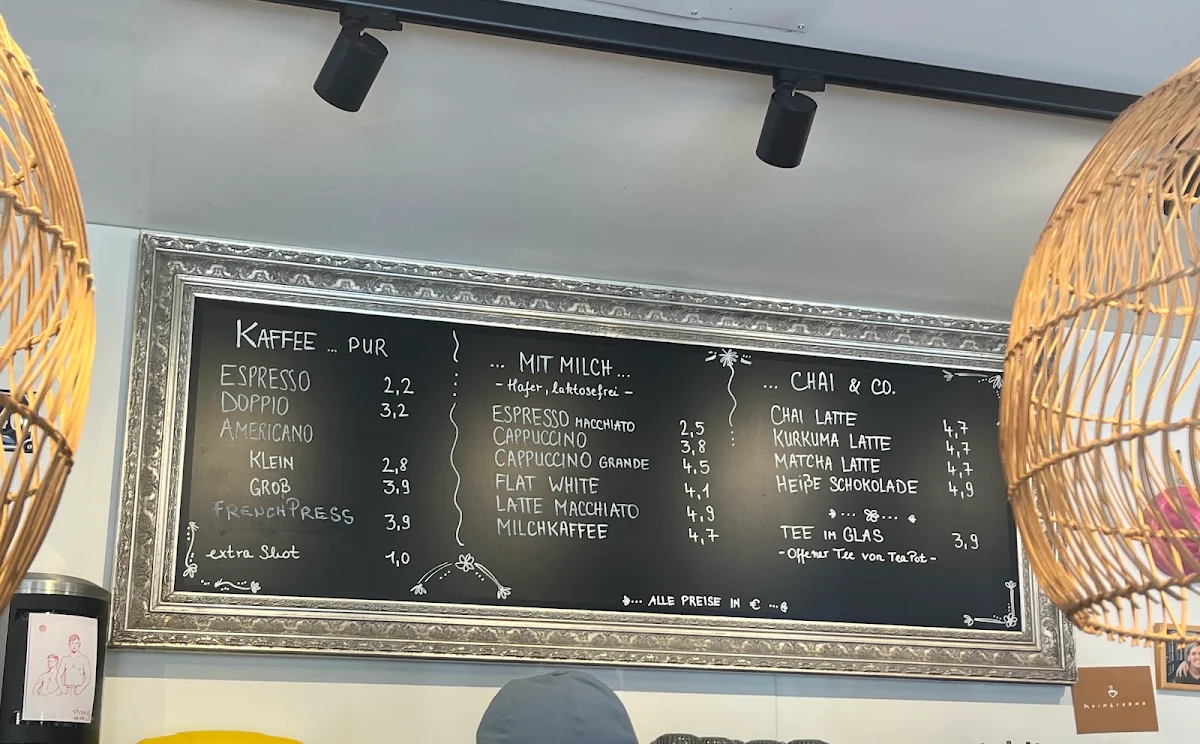 KAFFEE ... PUR
ESPRESSO 2,2
DOPPIO 3,2
AMERICANO
KLEIN 2,8
GROß 3,9
FRENCHPRESS 3,9
extra Shot 1,0
... MIT MILCH ...
- Hafer, laktosefrei -
ESPRESSO MACCHIATO 2,5
CAPPUCCINO 3,8
CAPPUCCINO GRANDE 4,5
FLAT WHITE 4,1
LATTE MACCHIATO 4,9
MILCHKAFFEE 4,7
... CHAI & CO.
CHAI LATTE 4,7
KURKUMA LATTE 4,7
MATCHA LATTE 4,7
HEIßE SCHOKOLADE 4,9
TEE IM GLAS 3,9
- Offener Tee von TeaPot -
... ALLE PREISE IN € ...